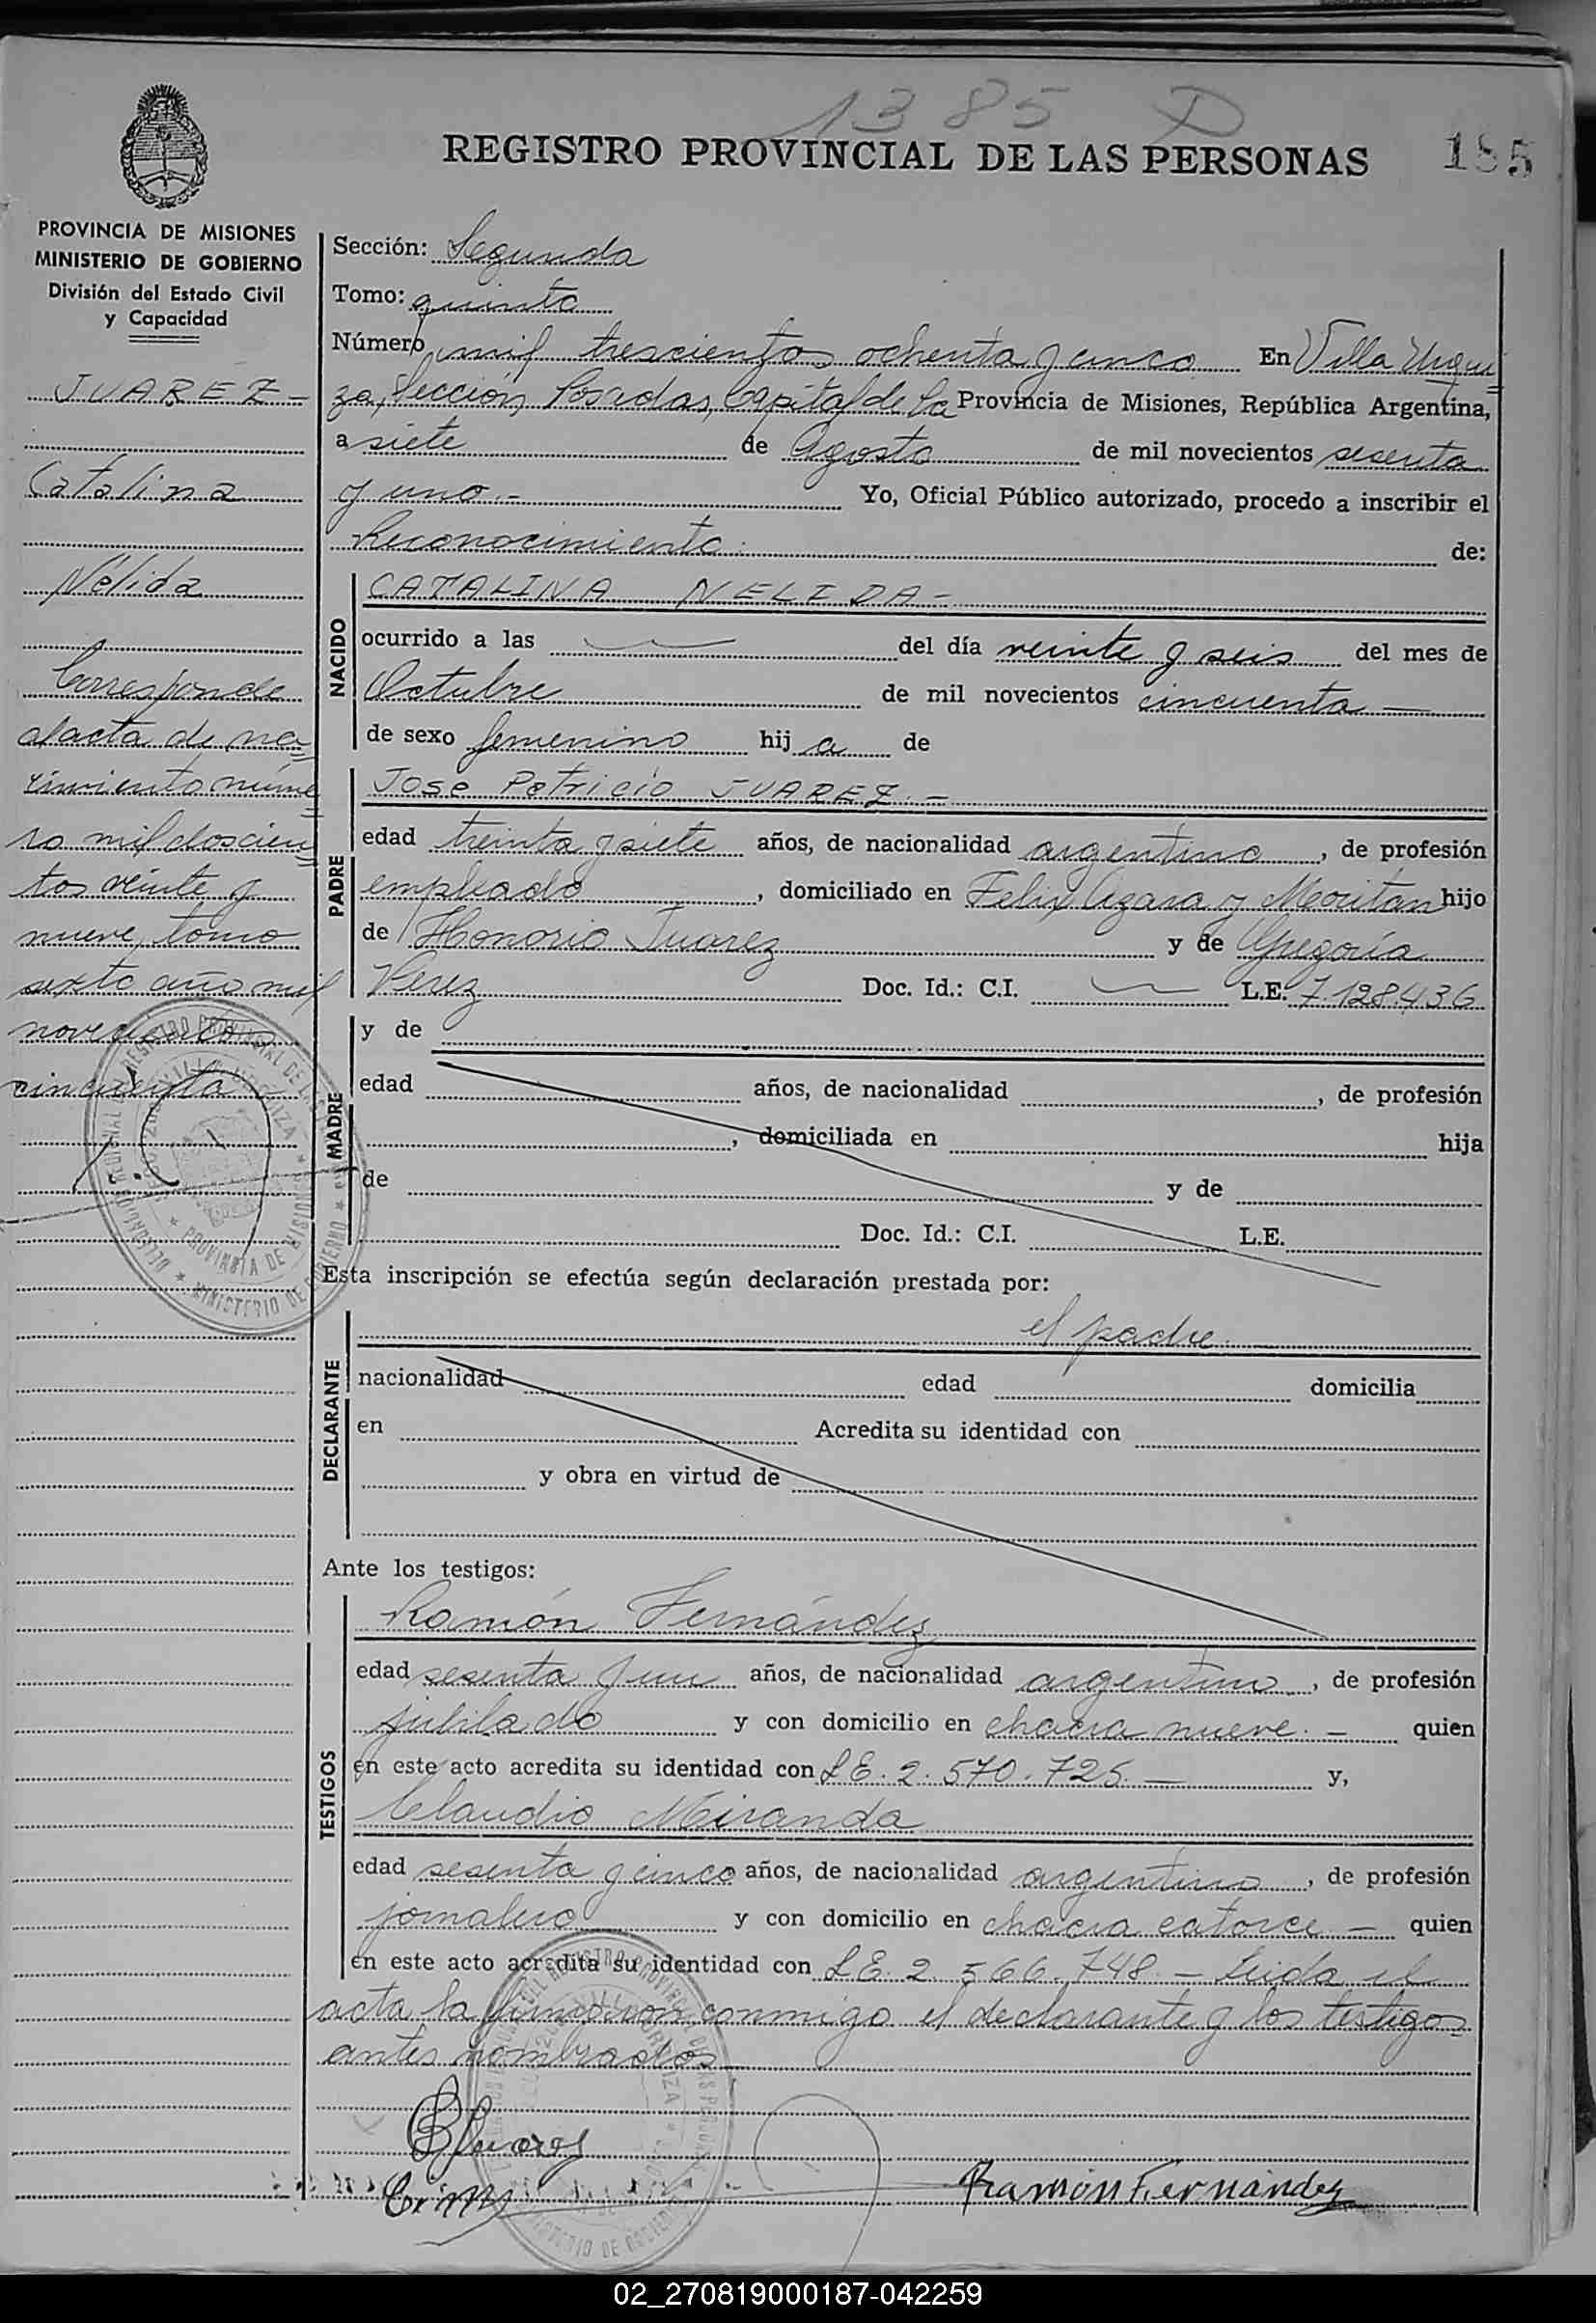 1385 D
REGISTRO PROVINCIAL DE LAS PERSONAS
185
PROVINCIA DE MISIONES
MINISTERIO DE GOBIERNO
División del Estado Civil
y Capacidad
JUAREZ -
Catalina
Nélida
Corresponde
al acta de na=
cimiento núme=
ro mil doscien=
tos veinte y
nueve, tomo
sexto año mil
novecientos
cincuenta
Sección: Segunda
Tomo: quinto
Número mil trescientos ochenta y cinco En Villa Urqui=
za, Sección Posadas, Capital de la Provincia de Misiones, República Argentina,
a siete de Agosto de mil novecientos sesenta
y uno.- Yo, Oficial Público autorizado, procedo a inscribir el
Reconocimiento de:
NACIDO
CATALINA NELIDA -
ocurrido a las — del día veinte y seis del mes de
Octubre de mil novecientos cincuenta —
de sexo femenino hij a de
PADRE
Jose Patricio JUAREZ. -
edad treinta y siete años, de nacionalidad argentino, de profesión
empleado, domiciliado en Felix Azara y Moritan hijo
de Honorio Juarez y de Gregoria
Perez Doc. Id.: C.I. — L.E. 7.128.436
MADRE
y de
edad años, de nacionalidad , de profesión
, domiciliada en hija
de y de
Doc. Id.: C.I. L.E.
Esta inscripción se efectúa según declaración prestada por:
DECLARANTE
el padre
nacionalidad edad domicilia
en Acredita su identidad con
y obra en virtud de
Ante los testigos:
TESTIGOS
Ramón Fernández
edad sesenta y un años, de nacionalidad argentino, de profesión
jubilado y con domicilio en chacra nueve. — quien
en este acto acredita su identidad con L.E. 2.570.725. — y,
Claudio Miranda
edad sesenta y cinco años, de nacionalidad argentino, de profesión
jornalero y con domicilio en chacra catorce — quien
en este acto acredita su identidad con L.E. 2.566.748 - Leida el
acta la firmaron conmigo el declarante y los testigos
antes nombrados
Ramón Fernández
02_270819000187-042259